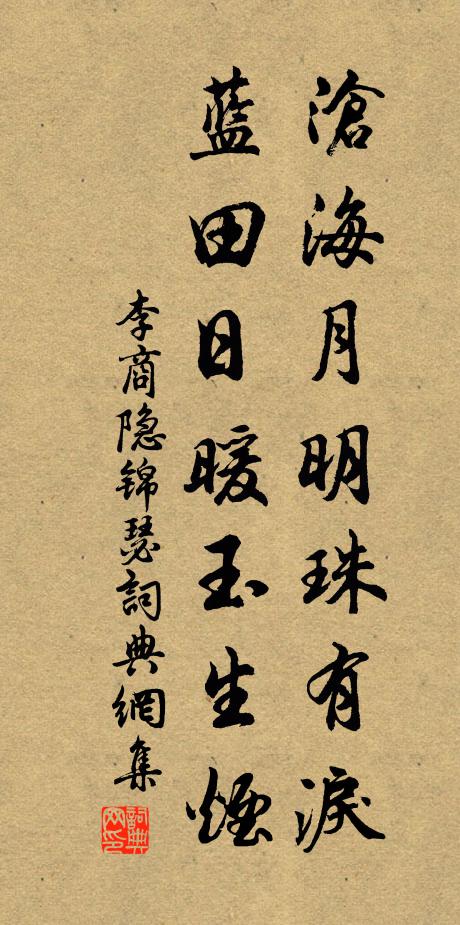 滄海月明珠有淚
藍田日暖玉生煙
李商隐锦瑟詞典網集
詞典網印